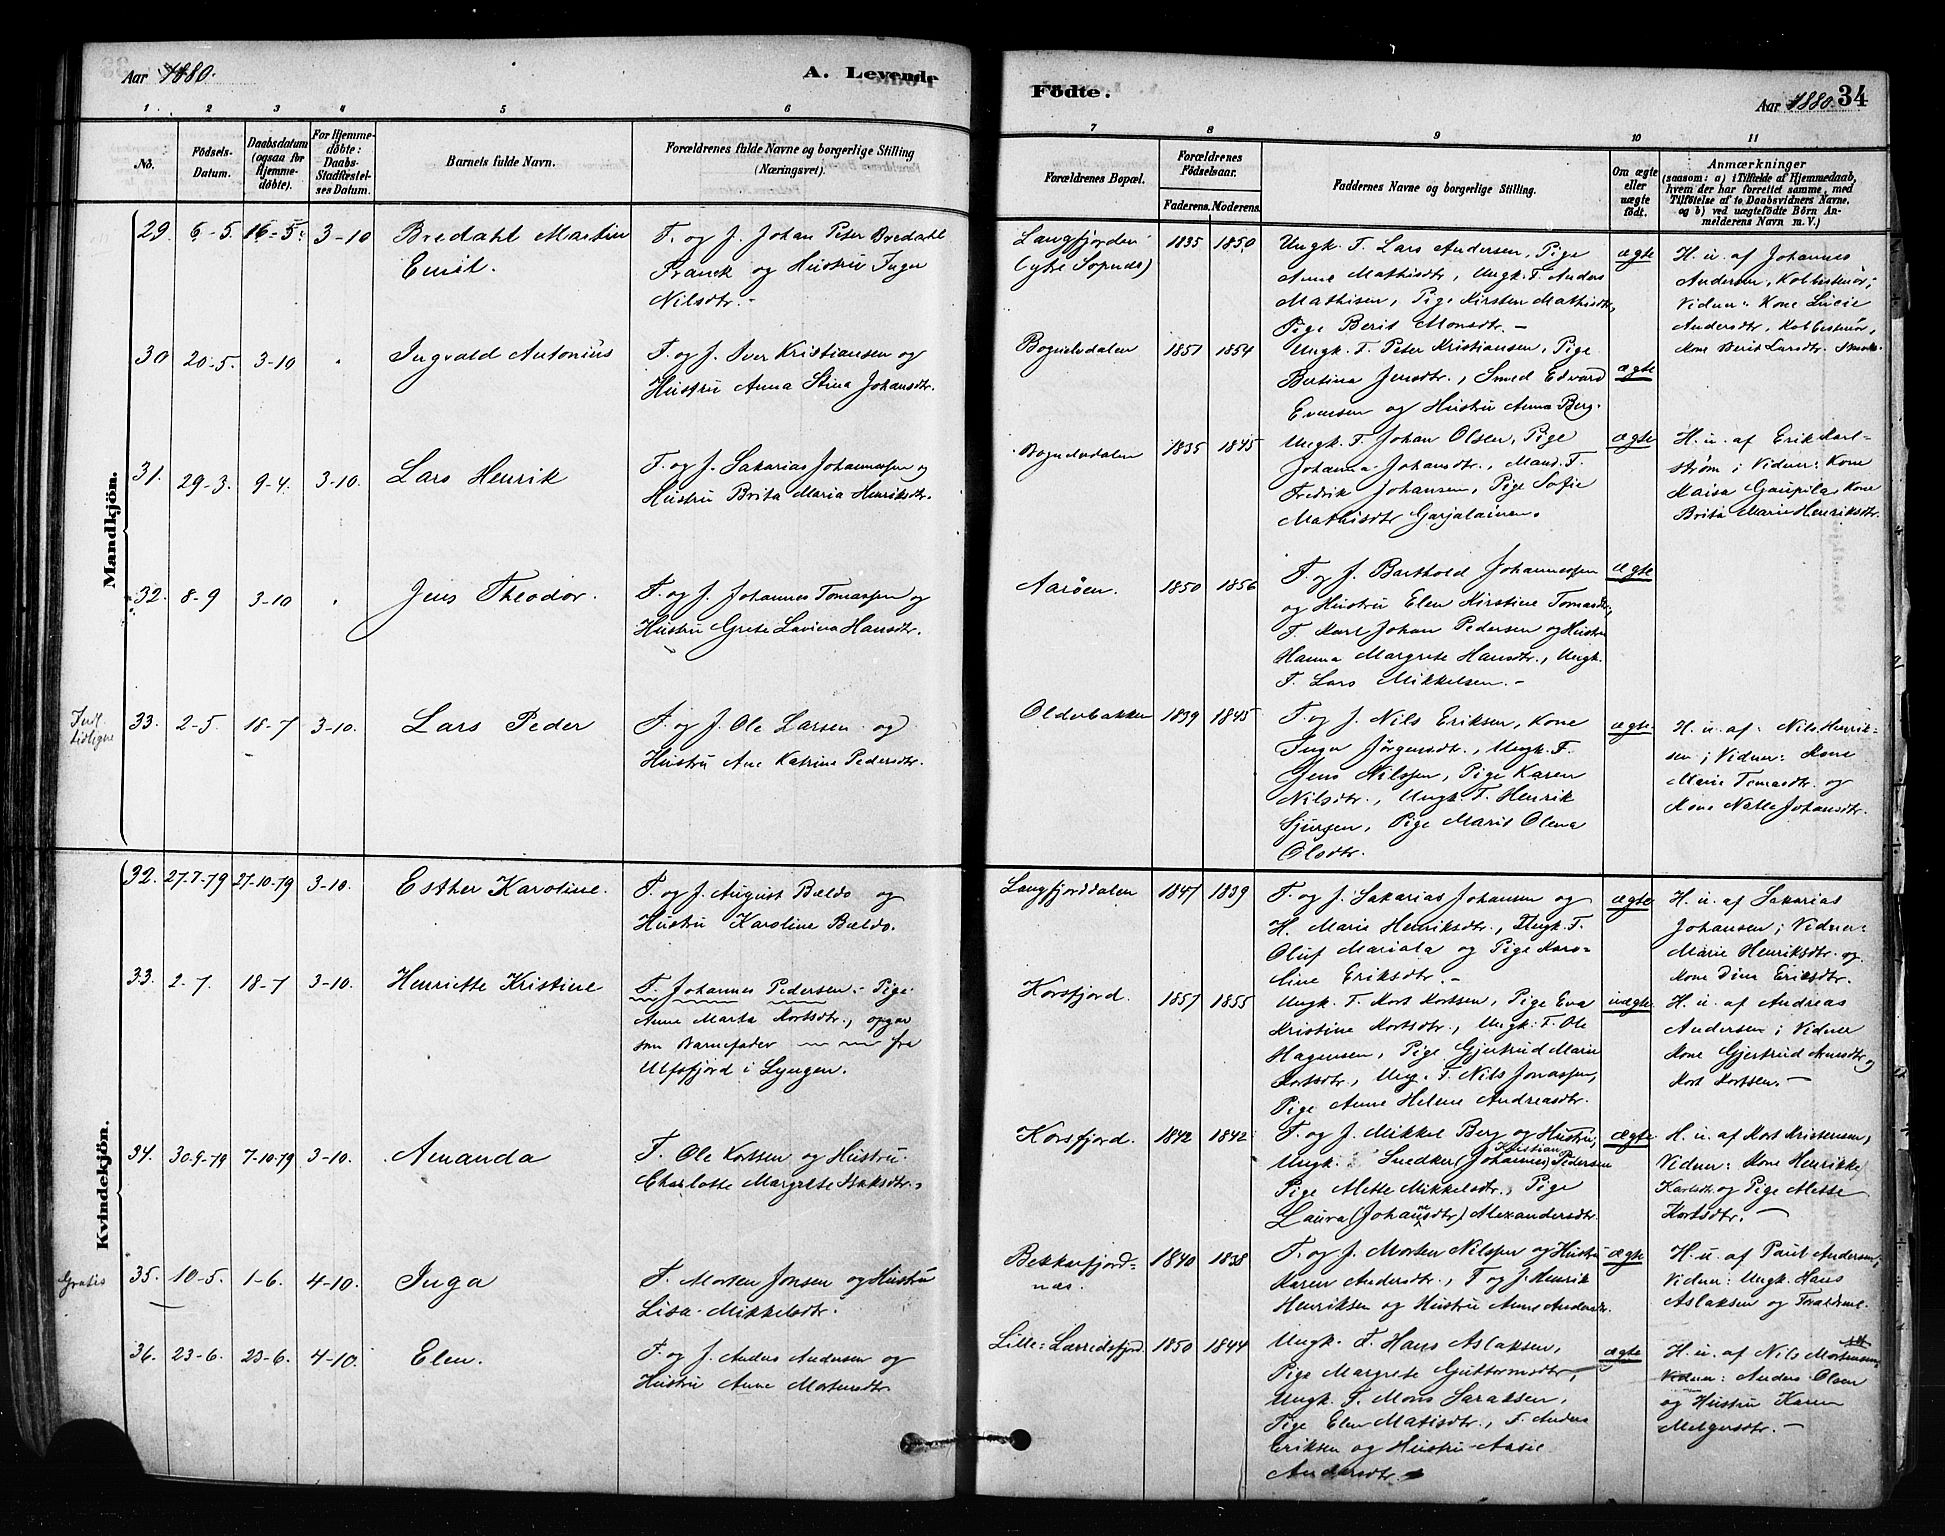 Aar 1880.
A. Levende
1. 2 3 4 5 6
No.
Fødsels-
Datum.
Daabsdatum
(ogsaa for
Hjemme-
døbte).
For Hjemme-
døbte:
Daabs-
Stadfæstel-
ses Datum.
Barnets fulde Navn.
Forældrenes fulde Navne og borgerlige Stilling
(Næringsvei).
Mandkjön.
29. 6-5. 16-5. 3-10 Bredahl Martin
Emil.
F. og J. Johan Peter Bredahl
Franck og Hustru Inga
Nilsdtr.-
30 20-5. 3-10 " Ingvald Antonius
F. og J. Iver Kristiansen og
Hustru Anna Stina Johansdtr.
31. 29-3. 9-4. 3-10. Lars Henrik
F. og J. Sakarias Johannessen og
Hustru Brita Maria Henriksdtr.
32. 8-9 3-10 " Jens Theodor.
F. og J. Johannes Tomassen og
Hustru Grete Lavina Hansdtr.
Indf.
tidligere
33. 2-5. 18-7 3-10. Lars Peder
F. og J. Ole Larsen og
Hustru Ane Katrine Pedersdtr.
Kvindekjön.
32. 27-7-79 27-10-79 3-10. Esther Karoline.
F. og J. August Bældo og
Hustru Karoline Bældo.
33. 2-7. 18-7 3-10. Henriette Kristine
F. Johannes Pedersen.- Pige
Anne Marta Kortsdtr., opgav
som Barnefader fra
Ulfsfjord i Lyngen.
34. 30-9-79 7-10-79 3-10. Amanda
F. Ole Kortsen og Hustru
Charlotte Margrete Isaksdtr.
Gratis
35. 10-5. 1-6. 4-10. Inga
F. Morten Jonsen og Hustru
Lisa Mikkelsdtr.
36. 23-6. 23-6. 4-10. Elen.
F. og J. Anders Andersen og
Hustru Anne Mortensdtr
Födte.
Aar 1880. 34
7 8 9 10 11
Forældrenes Bopæl.
Forældrenes
Fødselsaar.
Faderens. Moderens.
Faddernes Navne og borgerlige Stilling.
Om ægte
eller
uægte
født.
Anmærkninger
(saasom: a) i Tilfælde af Hjemmedaab,
hvem der har forrettet samme, med
Tilføielse af to Daabsvidners Navne,
og b) ved uægtefødte Børn An-
melderens Navn m. V.)
Langfjorden
(ytre Sopnes)
1835 1850
Ungk. F. Lars Andersen, Pige
Anne Mathisdtr, Ungk. F. Anders
Mathisen, Pige Kirsten Mathisdtr,
Pige Berit Monsdtr.-
ægte
H. u. af Johannes
Andersen, Kobbetnør;
Vidner: Kone Lucie
Andersdtr, Kobbetnør,
Kone Berit Larsdtr.
Bognelvdalen 1851 1854
Ungk. F. Peter Kristiansen, Pige
Bertina Jensdtr., Smed Edvard
Evensen og Hustru Anna Berg.
ægte
Bognelvdalen 1835 1845
Ungk. F. Johan Olsen, Pige
Johanna Johansdtr., Mand F.
Fredrik Johansen, Pige Sofie
Mathisdtr Garjalainen.
ægte
H. u. af Erik Karl-
strøm; Vidner: Kone
Kaisa Gaupila, Kone
Brita Marie Henriksdtr.
Aarøen. 1850 1856
F. og J. Barthold Johannessen
og Hustru Elen Kirstine Tomasdtr,
F. Karl Johan Pedersen og Hustru
Hanna Margrete Hansdtr., Ungk.
F. Lars Mikkelsen.-
ægte
Olderbakken 1839 1845
F. og J. Nils Eriksen, Kone
Inga Jørgensdtr., Ungk. F.
Jens Nilssen, Pige Karen
Nilsdtr., Ungk. F. Henrik
Sjursen, Pige Marit Olena
Olsdtr.
ægte
H. u. af Nils Henrik-
sen; Vidner: Kone
Marie Tomasdtr. og
Kone Johansdtr.
Langfjorddalen 1847 1839
F. og J. Sakarias Johansen og
H. Marie Henriksdtr., Ungk. F.
Oluf Mariala og Pige Karo-
line Eriksdtr.-
ægte
H. u. af Sakarias
Johansen; Vidner
Marie Henriksdtr. og
Kone Dina Eriksdtr.
Korsfjord. 1857 1855
Ungk. F. Kort Kortsen, Pige Eva
Kristine Kortsdtr., Ungk. F. Ole
Hagensen, Pige Gjertrud Marie
Kortsdtr., Ung. F. Nils Jonassen,
Pige Anne Helene Andreasdtr.
uægte
H. u. af Andreas
Andersen; Vidner
Kone Gjertrud Arnsdtr og
Kort Kortsen.-
Korsfjord. 1842 1842
F. og J. Mikkel Berg og Hustru,
Ungk. Snedker (Johannes) Kristian Pedersen
Pige Mette Mikkelsdtr., Pige
Laura (Johannesdtr) Alexandersdtr.
ægte
H. u. af Kort Kristensen,
Vidner: Kone Henrikke
Karlsdtr. og Pige Mette
Kortsdtr.-
Bekkarfjord-
næs.
1840 1838
F. og J. Morten Nilssen og Hustru
Karen Andersdtr., F. og J. Henrik
Henriksen og Hustru Anne Andersdtr.
ægte
H. u. af Paul Andersen,
Vidner: Ungk. Hans
Aslaksen og Forældrene.
Lille-Lærredsfjord 1850 1844
Ungk. F. Hans Aslaksen,
Pige Margrete Guttormsdtr,
Ungk. F. Mons Saraksen,
Pige Elen Matisdtr., F. Anders
Eriksen og Hustru Aasie
Andersdtr.
ægte
H. u. af Nils Mortensen
Vidner: Anders Olsen
og Hustru Karen
Melgersdtr.-